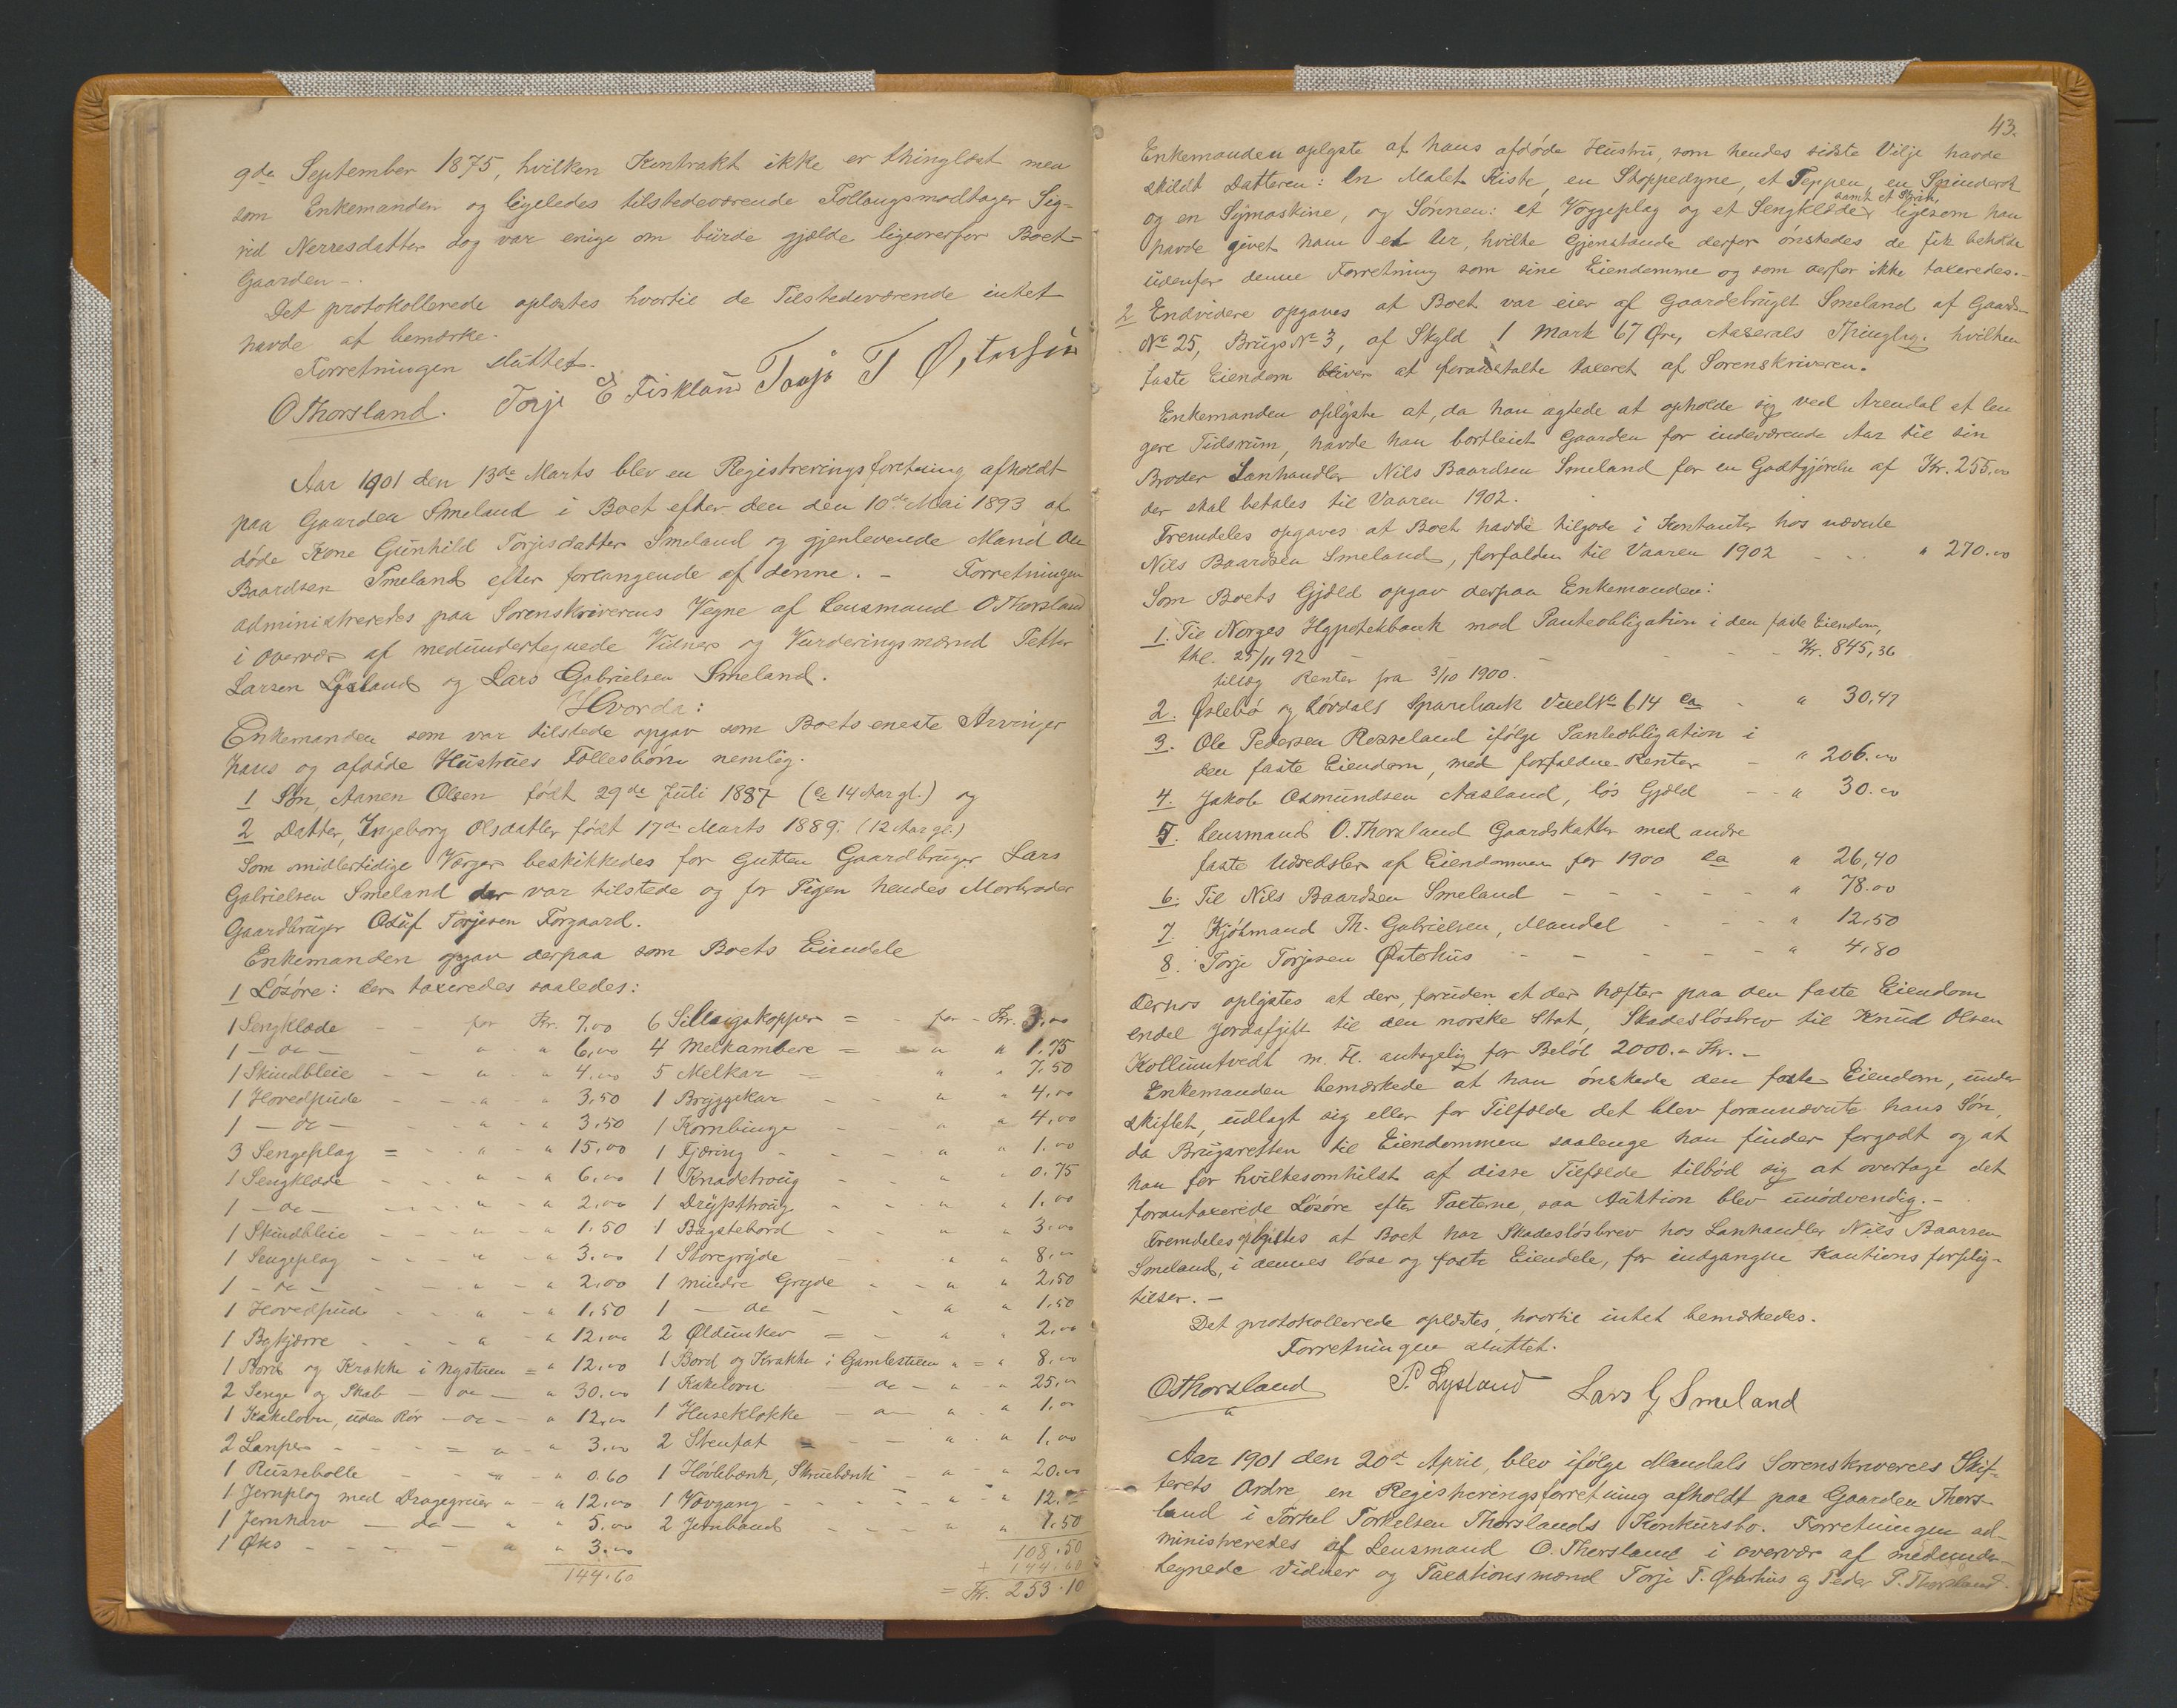 9de September 1875, hvilken Kontrakt ikke er thinglæst men
som Enkemanden og ligeledes tilstedeværende Føllaugsmodtager Sig-
rid Nerresdatter dog var enige om burde gjælde ligeoverfor Boet-
Gaarden -.
Det protokollerede oplæstes hvortil de Tilstedeværende intet
havde at bemærke.
Forretningen sluttet.
OThorsland. Torje E Fiskland Taaje T Østerhus
Aar 1901 den 13de Marts blev en Registreringsforetning afholdt
paa Gaarden Smeland i Boet efter den den 10de Mai 1893 af
døde Kone Gunhild Torjesdatter Smeland og gjenlevende Mand Ole
Baardsen Smeland efter forlangende af denne. - Forretningen
administreredes paa Sorenskriverens Vegne af Lensmand OThorsland
i Overvær af medundertegnede Vidner og Vurderingsmænd Petter
Larsen Lysland og Lars Gabrielsen Smeland.
Hvorda:
Enkemanden som var tilstede opgav som Boets eneste Arvinger
hans og afdøde Hustrues Fællesbørn nemlig.
1 Søn, Aanen Olsen født 29de Juli 1887 (ca 14 Aar gl.) og
2 Datter, Ingeborg Olsdatter født 17de Marts 1889. (12 Aar gl.)
Som midlertidige Værger beskikkedes for Gutten Gaardbruger Lars
Gabrielsen Smeland der var tilstede og for Pigen hendes Morbroder
Gaardbruger Osuf Torjesen Forgaard.
Enkemanden opgav derpaa som Boets Eiendele
1 Løsøre: der taxeredes saaledes:
1 Sengklæde - - for Kr. 7,00
1 - do - - " - " 6,00
1 Skindbleie - - " - " 4,00
1 Hovedpude - - " " 3,50
1 - do - - " - " 3,50
3 Sengeplag = - " - " 15,00
1 Sengklæde - - " - " 6,00
1 - do - - " - " 2,00
1 Skindbleie - " - " 1,50
1 Sengeplag - - " - " 3,00
1 - do - - " - " 2,00
1 Hovedpude - - " - " 1,50
1 Bykjærre - - " - " 12,00
1 Bord og Krakke i Nystuen = " 12,00
2 Senge og Skab - do - " 30,00
1 Kakelovn, uden Rør - do - " 12,00
2 Lamper - - = " - " 3,00
1 Russebolle - - " - " 0.60
1 Jernplog med Dragegreier " - " 12,00
1 Jernharv - do - " " 5,00
1 Øks - - - " " 3,00
144.60
6 Sillaugskopper = - for - Kr. 3,00
4 Melkambere = - " " 1,75
5 Melkar - - " " 7,50
1 Bryggekar - - " " 4,00
1 Kornbinge - - " " 4,00
1 Fjæring - - - " " 1,00
1 Knadetroug - - " " 0.75
1 Drypthroug - - " " 1,00
1 Bagstebord - - " " 3,00
1 Storegryde - " " 8,00
1 mindre Gryde - - " " 2,50
1 - do - - " " 1,50
2 Øldunker = - " " 2,00
1 Bord og Krakke i Gamlestuen " = " 8,00
1 Kakelovn - do - " " 25,00
1 Huseklokke - " - " " 1,00
2 Stenfat = - - " " 1,00
1 Høvlebænk, Skruebænk - " " 20,00
1 Vævgang - - - " " 12.00
2 Jernbaand - - - " " 1.50
108.50
+ 144.60
= Kr. 253.10
43.
Enkemanden oplyste af hans afdøde Hustru, som hendes sidste Vilje havde
skildt Datteren: en Malet Kiste, en Stoppedyne, et Teppen, en Spinderok
samt et Skrin,
og en Symaskine, og Sønnen: et Voggeplag og et Sengklæde ligesom han
havde givet ham et Ur, hvilke Gjenstande derfor ønskedes de fik beholde
udenfor denne Forretning som sine Eiendomme og som derfor ikke taxeredes.-
2 Endvidere opgaves at Boet var eier af Gaardebruget Smeland af Gaards-
No 25, Brugs No 3, af Skyld 1 Mark 67 Øre, Aaserals Thinglag. hvilken
faste Eiendom bliver at foranstalte taxeret af Sorenskriveren.
Enkemanden oplyste at, da han agtede at opholde sig ved Arendal et len
gere Tidsrum, havde han bortleiet Gaarden for indeværende Aar til sin
Broder Lanhandler Nils Baardsen Smeland for en Godtgjørelse af Kr. 255,00
der skal betales til Vaaren 1902.
Fremdeles opgaves at Boet havde tilgode i Kontanter hos nævnte
Nils Baardsen Smeland, forfalden til Vaaren 1902 - - - " 270.00
Som Boets Gjæld opgav derpaa Enkemanden:
1. Til Norges Hypothekbank mod Panteobligation i den faste Eiendom,
thl. 25/11 92 - - - - Kr. 845,36
tillæg Renter fra 3/10 1900.
2. Øslebø og Løvdals Sparebank Vexel No 614 ca - " 30,47
3. Ole Pedersen Rosseland ifølge Panteobligation i
den faste Eiendom, med forfaldne Renter - " 206.00
4. Jakob Osmundsen Aasland, løs Gjæld - - " 30.00
5. Lensmand O. Thorsland Gaardskatter med andre
faste Udredsler af Eiendommen for 1900 ca " 26,40
6. Til Nils Baardsen Smeland - - - - - " 78.00
7 Kjøbmand Th. Gabrielsen, Mandal - - - " 12,50
8. Torje Torjesen Østerhus - - - - - " 4,80
Dernæs oplystes at der, foruden at der hæfter paa den faste Eiendom
endel Jordafgift til den norske Stat, Skadesløsbrev til Knud Olsen
Kolluntvedt m. Fl. antagelig for Beløb 2000.- Kr. -
Enkemanden bemærkede at han ønskede den faste Eiendom, under
skiftet, udlagt sig eller for Tilfælde det blev forannævnte hans Søn,
da Brugsretten til Eiendommen saalenge han finder forgodt og at
han for hvilkesomhilst af disse Tilfælde tilbød sig at overtage det
forantaxerede Løsøre efter Taxterne, saa Auktion blev unødvendig. -
Fremdeles oplystes at Boet har Skadesløsbrev hos Lanhandler Nils Baarsen
Smeland, i dennes løse og faste Eiendele, for indgangne Kautionsforplig-
tilser. -
Det protokollerede oplæstes, hvortil intet bemærkedes.
Forretningen sluttet.
OThorsland P. Lysland Lars G Smeland
Aar 1901 den 20de April, blev ifølge Mandals Sorenskriveries Skif-
terets Ordre en Registreringsforretning afholdt paa Gaarden Thors-
land i Torkel Torkelsen Thorslands Konkursbo. Forretningen ad-
ministreredes af Lensmand O. Thorsland i overvær af medunder-
tegnede Vidner og Taxationsmænd Torje T. Østerhus og Peder P. Thorsland.